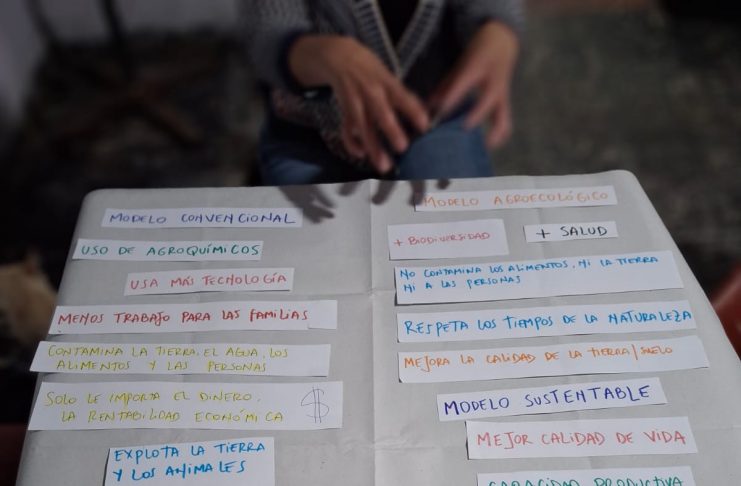 MODELO CONVENCIONAL
USO DE AGROQUÍMICOS
USA MÁS TECNOLOGÍA
MENOS TRABAJO PARA LAS FAMILIAS
CONTAMINA LA TIERRA, EL AGUA, LOS
ALIMENTOS Y LAS PERSONAS
SOLO LE IMPORTA EL DINERO.
LA RENTABILIDAD ECONÓMICA $
EXPLOTA LA TIERRA
Y LOS ANIMALES
MODELO AGROECOLÓGICO
+ BIODIVERSIDAD
+ SALUD
NO CONTAMINA LOS ALIMENTOS, NI LA TIERRA
NI A LAS PERSONAS
RESPETA LOS TIEMPOS DE LA NATURALEZA
MEJORA LA CALIDAD DE LA TIERRA/SUELO
MODELO SUSTENTABLE
MEJOR CALIDAD DE VIDA
CAPACIDAD PRODUCTIVA